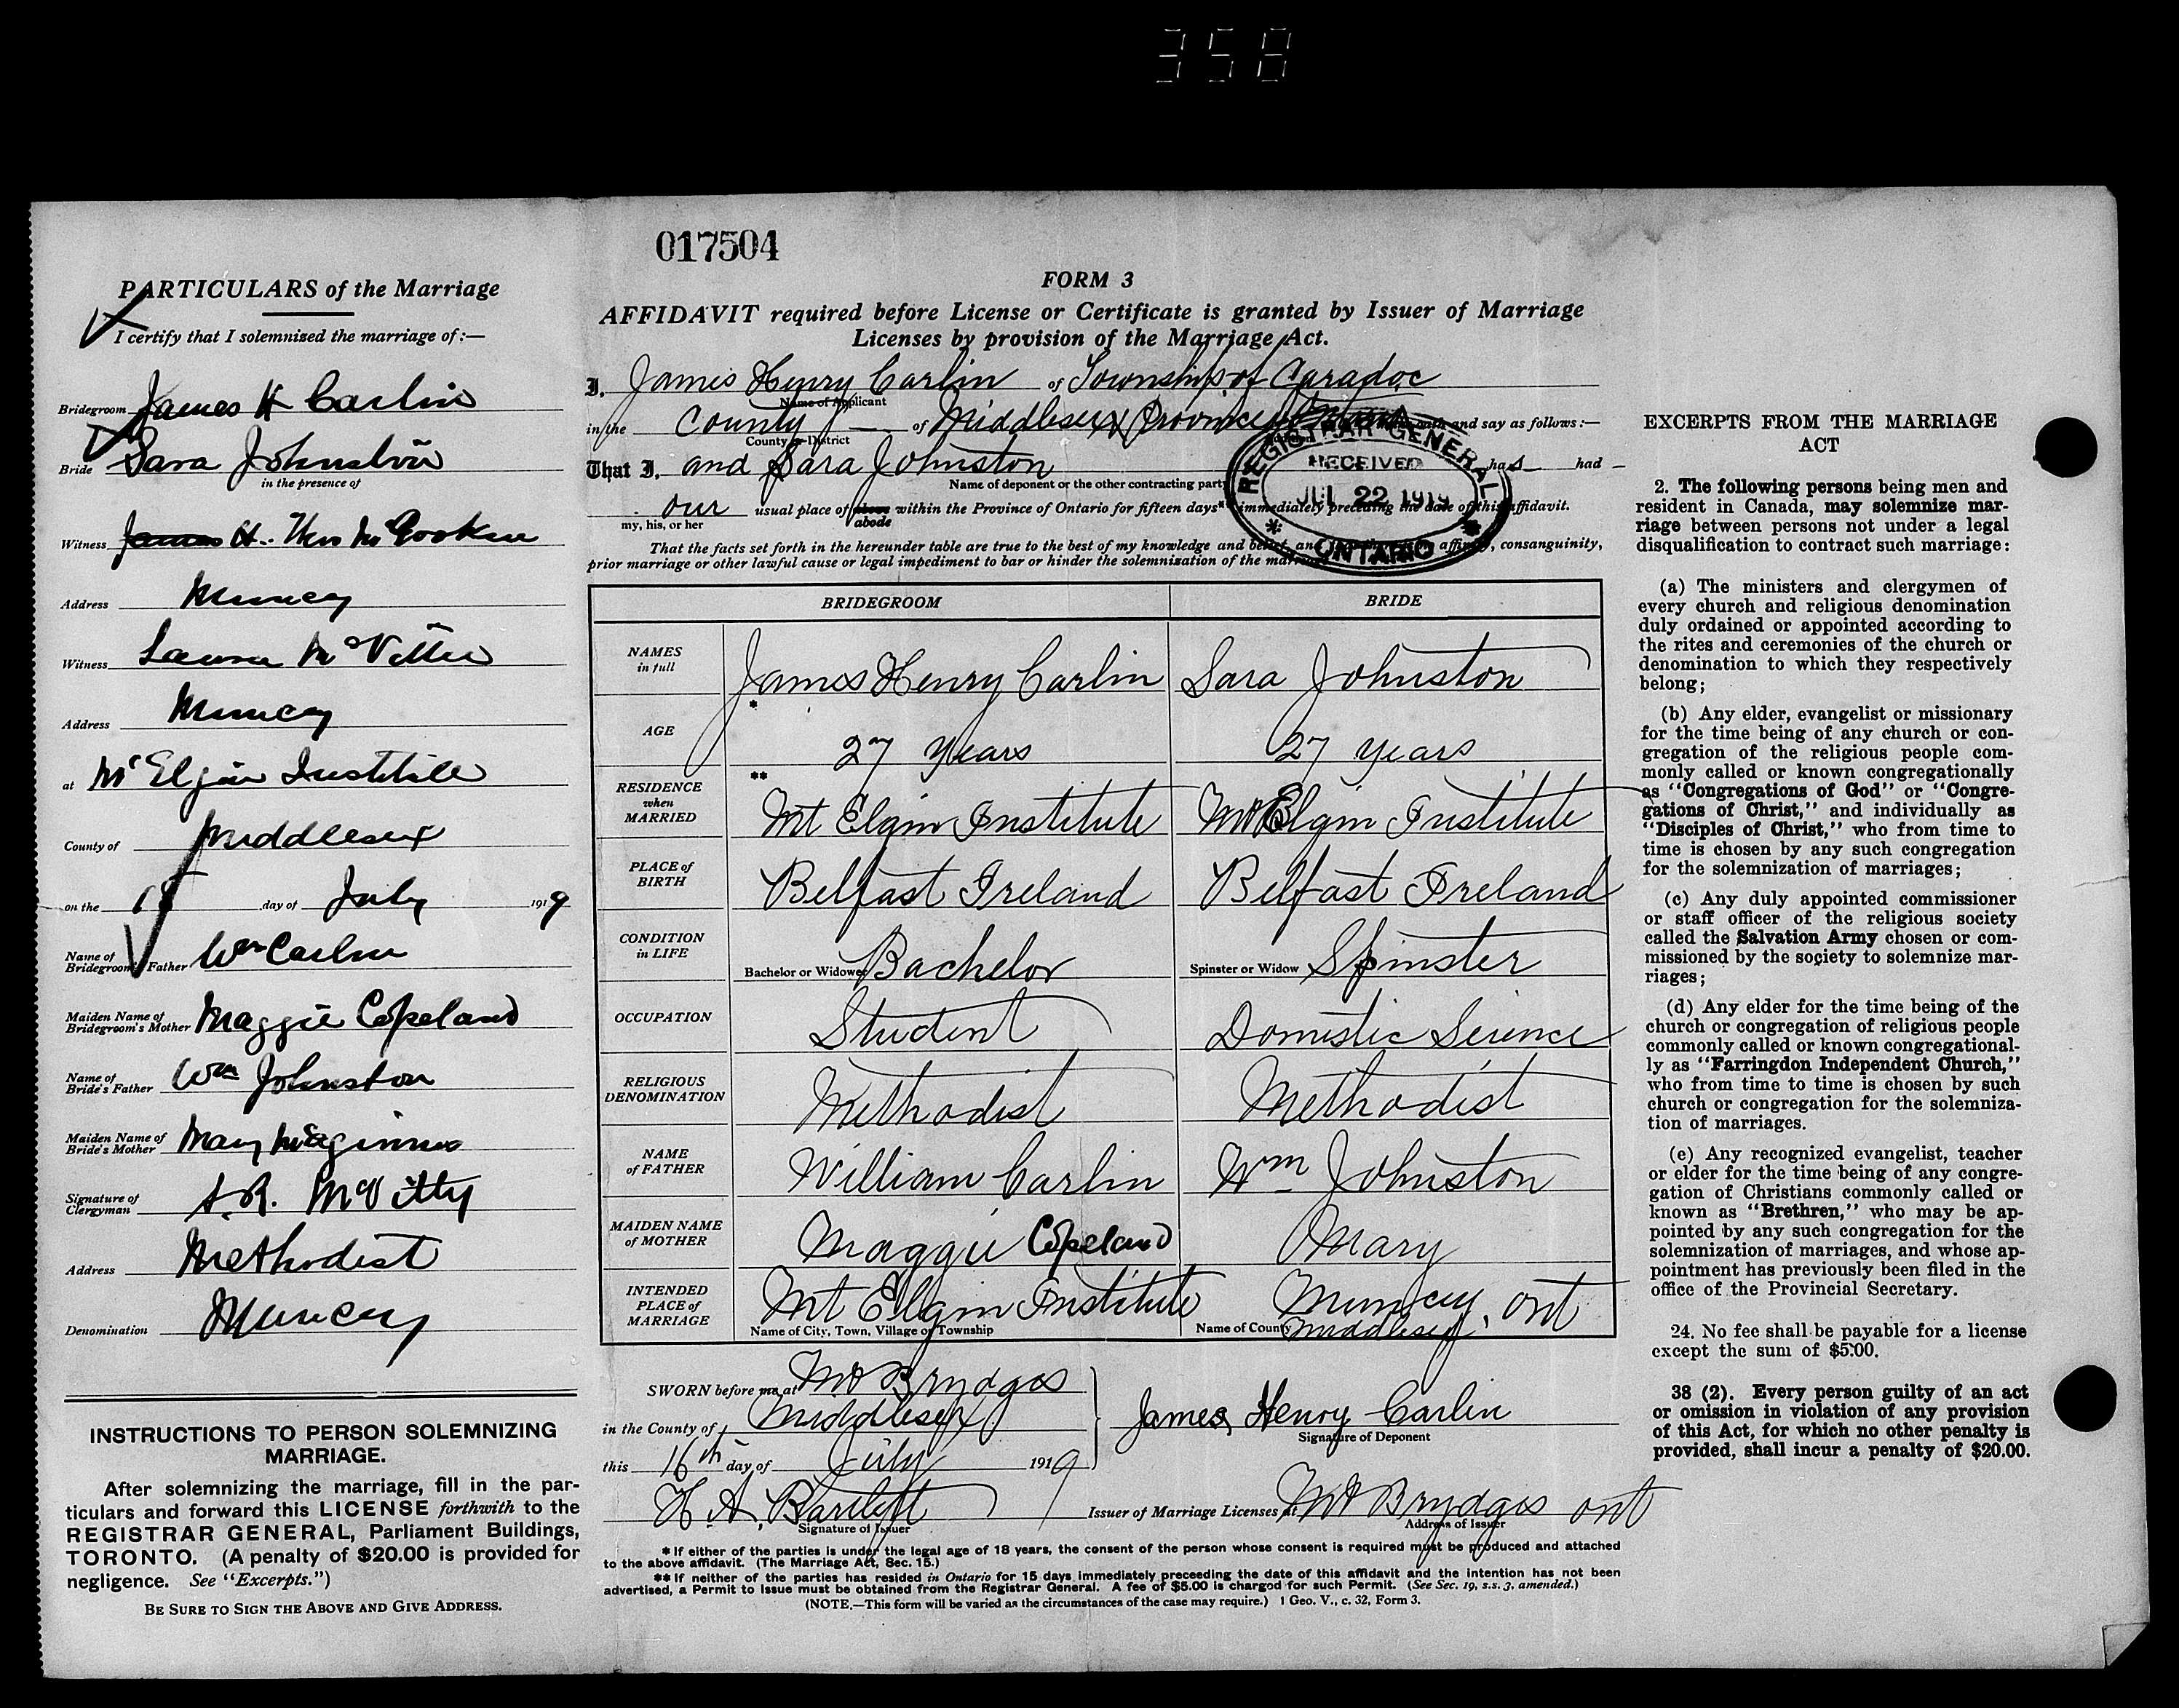 358
017504
PARTICULARS of the Marriage
I certify that I solemnized the marriage of:—
Bridegroom James H Carlin
Bride Sara Johnston
in the presence of
Witness James H.
Address Muncey
Witness Laura McVittie
Address Muncey
at Mt Elgin Institute
County of Middlesex
on the 18 day of July 1919
Name of Bridegroom's Father Wm Carlin
Maiden Name of Bridegroom's Mother Maggie Copeland
Name of Bride's Father Wm Johnston
Maiden Name of Bride's Mother Mary McGinnis
Signature of Clergyman S.R. McVitty
Address Methodist
Denomination Muncey
INSTRUCTIONS TO PERSON SOLEMNIZING
MARRIAGE.
After solemnizing the marriage, fill in the par-
ticulars and forward this LICENSE forthwith to the
REGISTRAR GENERAL, Parliament Buildings,
TORONTO. (A penalty of $20.00 is provided for
negligence. See "Excerpts.")
BE SURE TO SIGN THE ABOVE AND GIVE ADDRESS.
FORM 3
AFFIDAVIT required before License or Certificate is granted by Issuer of Marriage
Licenses by provision of the Marriage Act.
I, James Henry Carlin of Township of Caradoc
Name of Applicant
in the County of Middlesex Province of Ontario and say as follows:—
County or District
That I, and Sara Johnston had
Name of deponent or the other contracting party
our usual place of above within the Province of Ontario for fifteen days* immediately preceding the date of this affidavit.
my, his, or her abode
That the facts set forth in the hereunder table are true to the best of my knowledge and belief, and affinity, consanguinity,
prior marriage or other lawful cause or legal impediment to bar or hinder the solemnization of the marriage
REGISTRAR GENERAL
RECEIVED
JUL 22 1919
ONTARIO
BRIDEGROOM BRIDE
NAMES in full James Henry Carlin Sara Johnston
AGE * 27 years 27 years
RESIDENCE when MARRIED ** Mt Elgin Institute Mt Elgin Institute
PLACE of BIRTH Belfast Ireland Belfast Ireland
CONDITION in LIFE Bachelor or Widower Bachelor Spinster or Widow Spinster
OCCUPATION Student Domestic Science
RELIGIOUS DENOMINATION Methodist Methodist
NAME of FATHER William Carlin Wm Johnston
MAIDEN NAME of MOTHER Maggie Copeland Mary
INTENDED PLACE of MARRIAGE Mt Elgin Institute Muncey, Ont
Name of City, Town, Village or Township Name of County Middlesex
SWORN before me at Mt Brydges
in the County of Middlesex James Henry Carlin
Signature of Deponent
this 16th day of July 1919
H. A. Bartlett Issuer of Marriage Licenses at Mt Brydges Ont
Signature of Issuer Address of Issuer
* If either of the parties is under the legal age of 18 years, the consent of the person whose consent is required must be produced and attached
to the above affidavit. (The Marriage Act, Sec. 15.)
** If neither of the parties has resided in Ontario for 15 days immediately preceding the date of this affidavit and the intention has not been
advertised, a Permit to Issue must be obtained from the Registrar General. A fee of $5.00 is charged for such Permit. (See Sec. 19, s.s. 3, amended.)
(NOTE.—This form will be varied as the circumstances of the case may require.) 1 Geo. V., c. 32, Form 3.
EXCERPTS FROM THE MARRIAGE
ACT
2. The following persons being men and
resident in Canada, may solemnize mar-
riage between persons not under a legal
disqualification to contract such marriage:
(a) The ministers and clergymen of
every church and religious denomination
duly ordained or appointed according to
the rites and ceremonies of the church or
denomination to which they respectively
belong;
(b) Any elder, evangelist or missionary
for the time being of any church or con-
gregation of the religious people com-
monly called or known congregationally
as "Congregations of God" or "Congre-
gations of Christ," and individually as
"Disciples of Christ," who from time to
time is chosen by any such congregation
for the solemnization of marriages;
(c) Any duly appointed commissioner
or staff officer of the religious society
called the Salvation Army chosen or com-
missioned by the society to solemnize mar-
riages;
(d) Any elder for the time being of the
church or congregation of religious people
commonly called or known congregational-
ly as "Farringdon Independent Church,"
who from time to time is chosen by such
church or congregation for the solemniza-
tion of marriages.
(e) Any recognized evangelist, teacher
or elder for the time being of any congre-
gation of Christians commonly called or
known as "Brethren," who may be ap-
pointed by any such congregation for the
solemnization of marriages, and whose ap-
pointment has previously been filed in the
office of the Provincial Secretary.
24. No fee shall be payable for a license
except the sum of $5.00.
38 (2). Every person guilty of an act
or omission in violation of any provision
of this Act, for which no other penalty is
provided, shall incur a penalty of $20.00.